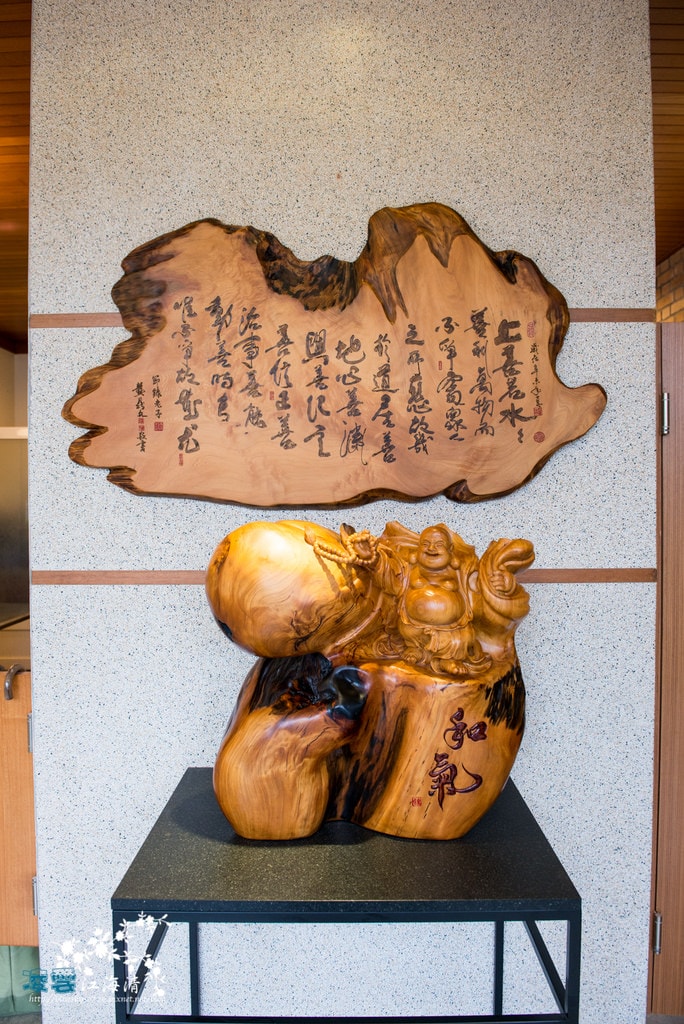 上善若水〻
善利萬物而
不爭處眾人
之所惡故幾
於道居善
地心善淵
與善仁言
善信正善
治事善能
動善時夫
唯不爭故無尤
節錄老子
和氣
江海清